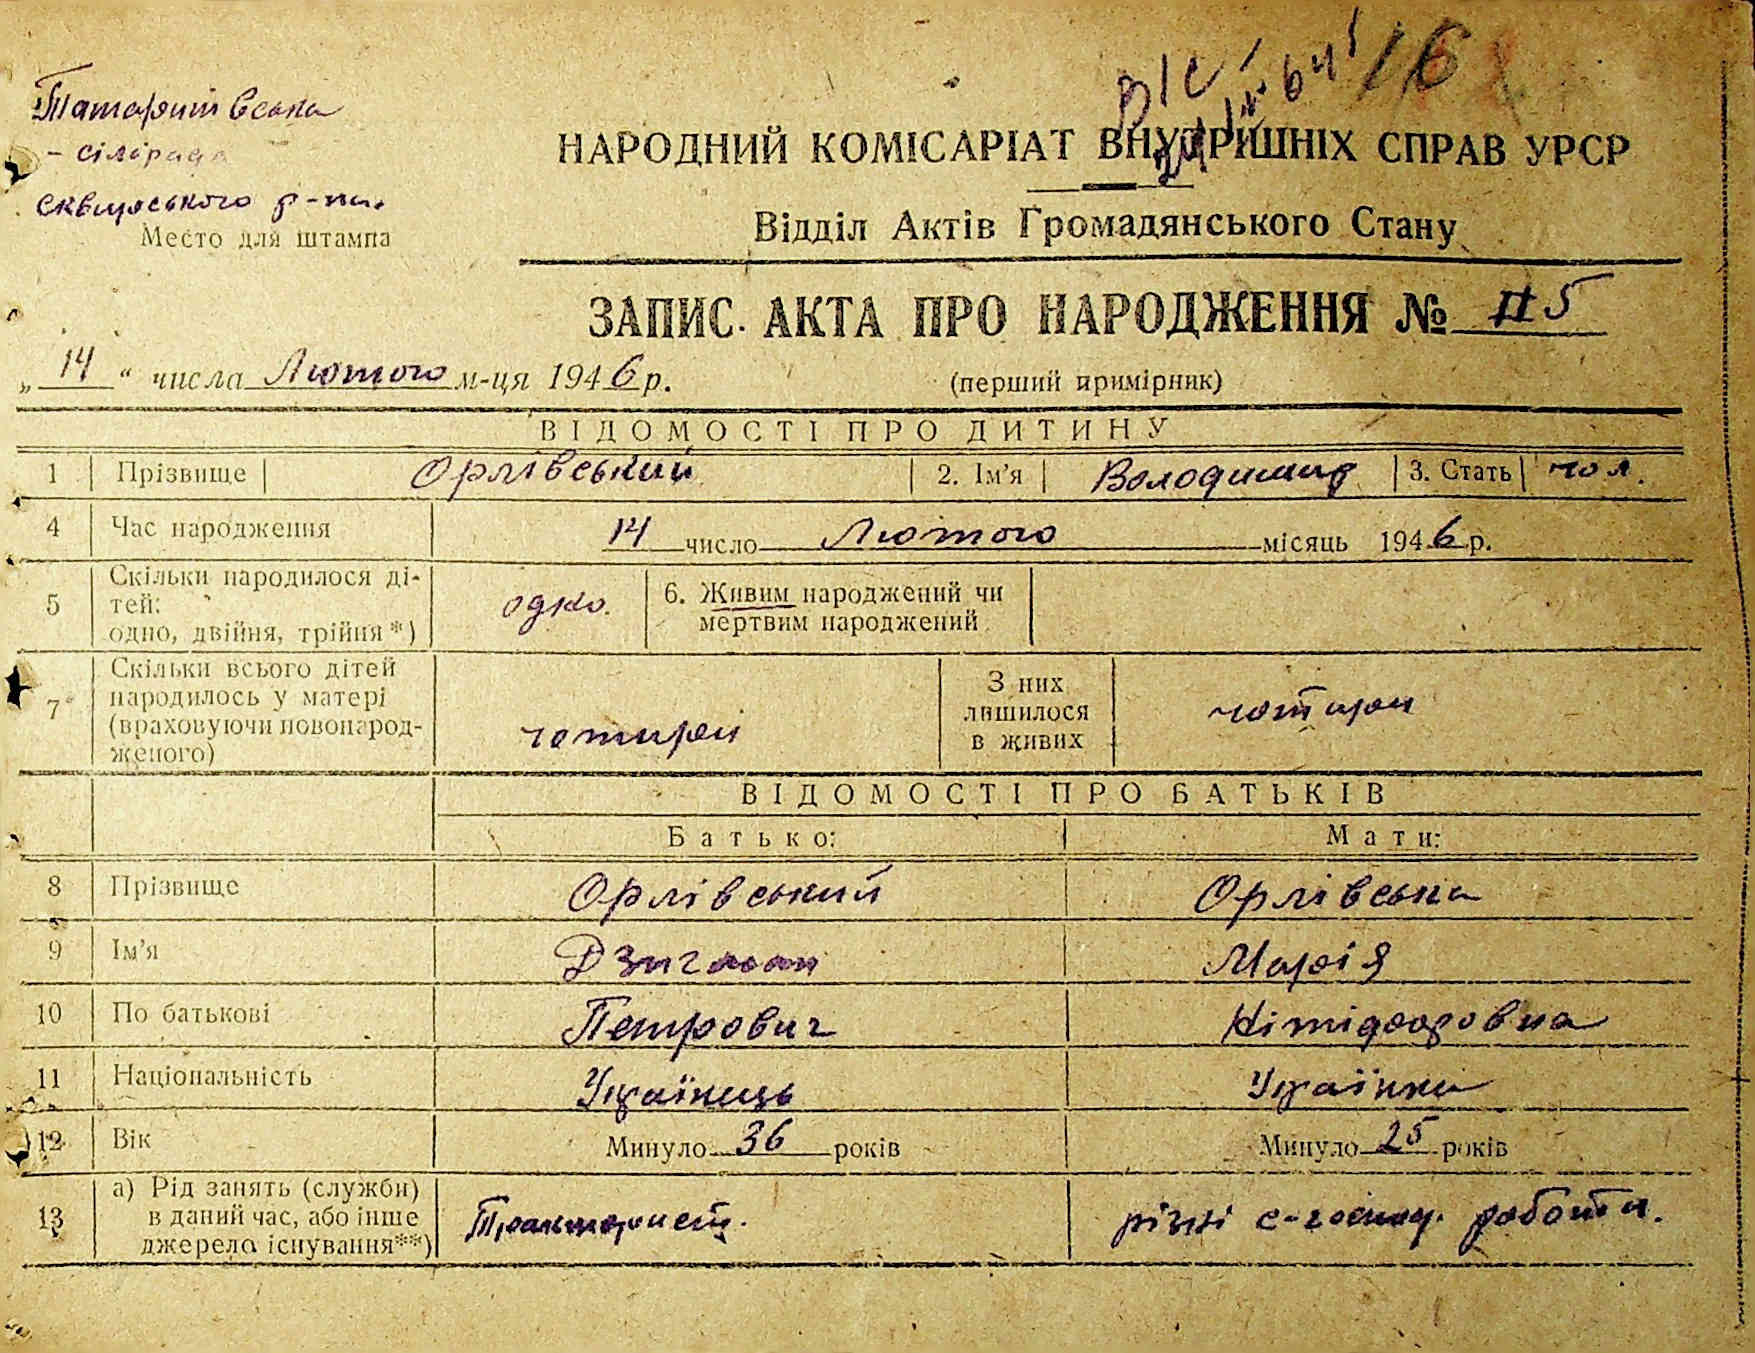 Татаринівська
- сілрада
Сквирського р-ну.
Место для штампа
16
НАРОДНИЙ КОМІСАРІАТ ВНУТРІШНІХ СПРАВ УРСР
Відділ Актів Громадянського Стану
ЗАПИС АКТА ПРО НАРОДЖЕННЯ № 5
„14“ числа Лютого м-ця 1946 р.
(перший примірник)
ВІДОМОСТІ ПРО ДИТИНУ
1 Прізвище Орлівський 2. Ім'я Володимир 3. Стать чол.
4 Час народження 14 число Лютого місяць 1946 р.
5 Скільки народилося ді-
тей:
одно, двійня, трійня*)
одно.
6. Живим народжений чи
мертвим народжений
7 Скільки всього дітей
народилось у матері
(враховуючи новонарод-
женого)
чотири
З них
лишилося
в живих
чотири
ВІДОМОСТІ ПРО БАТЬКІВ
Батько: Мати:
8 Прізвище Орлівський Орлівська
9 Ім'я Марія
10 По батькові Петрович
11 Національність Українець Українка
12 Вік Минуло 36 років Минуло 25 років
13 а) Рід занять (служби)
в даний час, або інше
джерело існування**)
Тракторист.
різні с-господ. роботи.